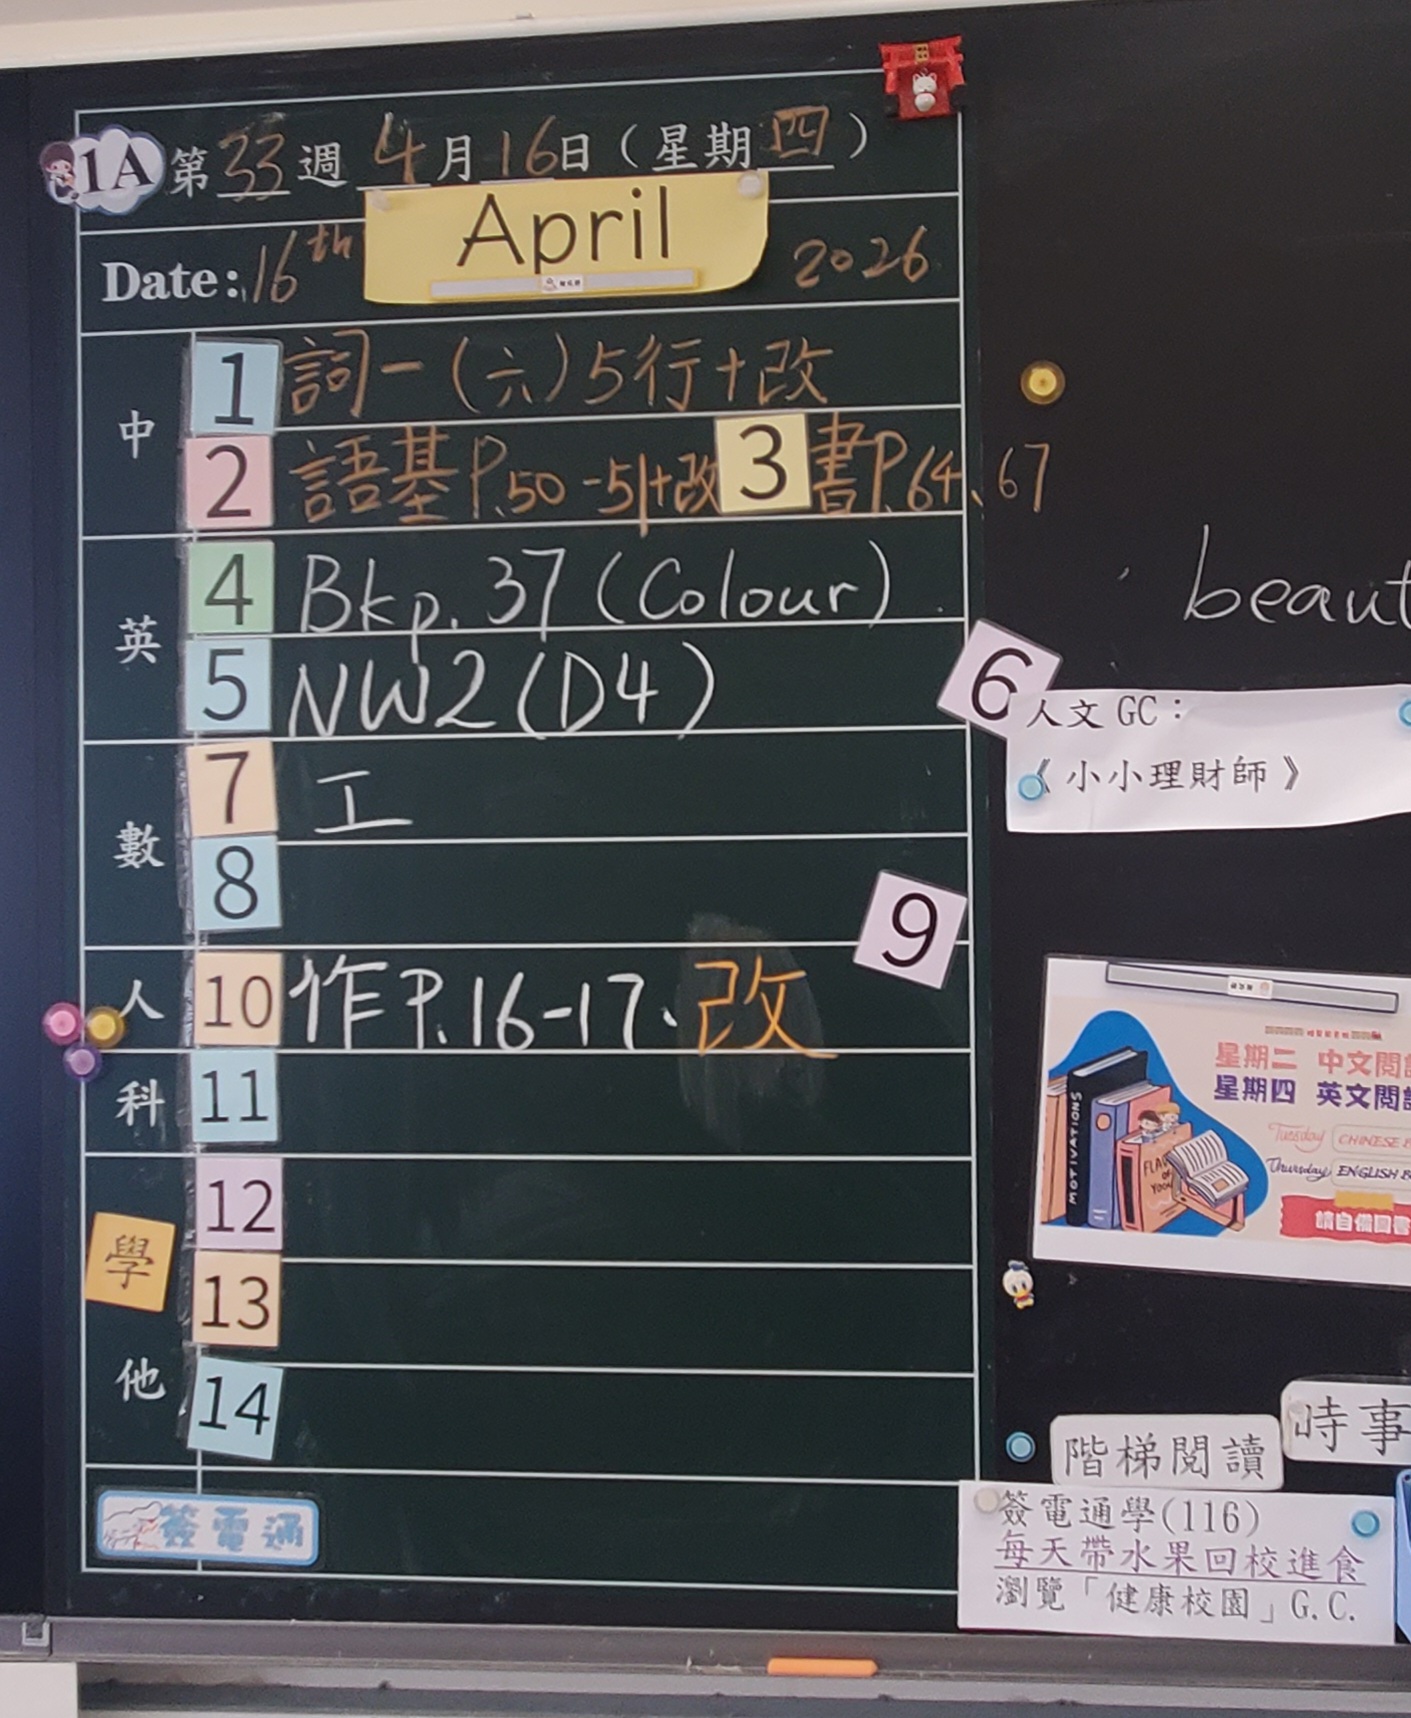 1A 第33週 4月16日(星期四)
Date: 16th April 2026
中
1 詞一(六)5行+改
2 語基P.50-51+改 3 書P.64、67
英
4 Bkp.37(Colour)
5 NW2(D4)
6 人文 GC:
《小小理財師》
數
7 工
8
9
人
10 作P.16-17、改
科
11
12
學
13
他
14
簽電通
beaut
MOTIVATIONS
星期二 中文閱
星期四 英文閱
Tuesday CHINESE
Thursday ENGLISH
請自備圖書
階梯閱讀
時事
簽電通學(116)
每天帶水果回校進食
瀏覽「健康校園」G.C.